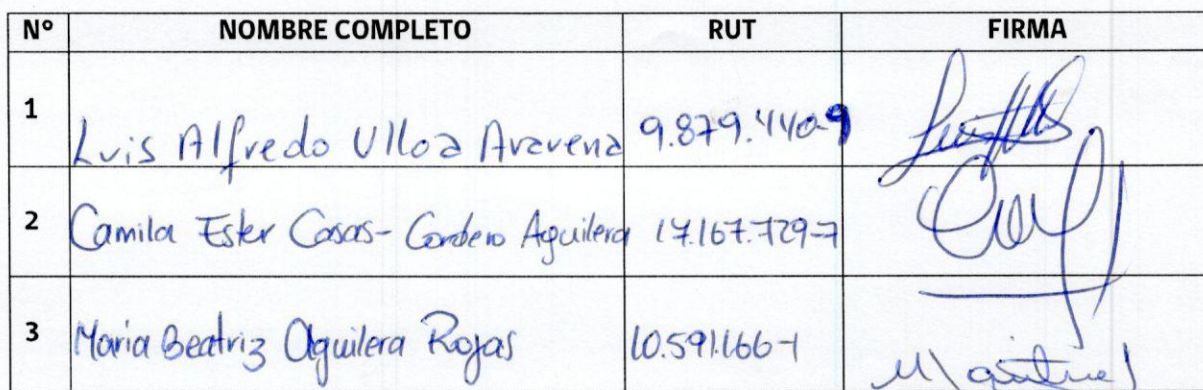 N° NOMBRE COMPLETO RUT FIRMA
1 Luis Alfredo Ulloa Aravena 9.879.440-9
2 Camila Ester Casas-Cordero Aguilera 17.167.729-7
3 Maria Beatriz Aguilera Rojas 10.591.166-1